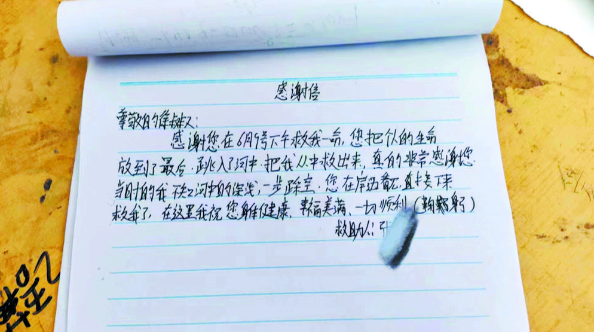 感谢信
尊敬的徐叔叔:
感谢您在6月9号下午救我一命,您把个人的生命
放到了最后,跳入了河中把我从中救出来,真的非常感谢您.
当时的我不知河中的深浅,一步踏空,您在岸西看见,直接下来
救我了,在这里我祝您身体健康,幸福美满,一切顺利(鞠躬)
救助人:张